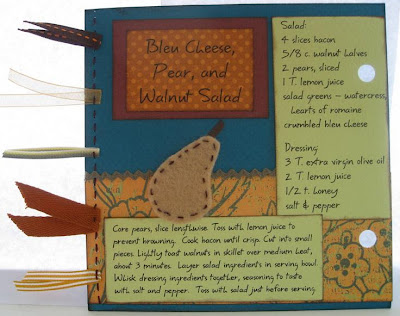 Bleu Cheese,
Pear, and
Walnut Salad
Salad:
4 slices bacon
5/8 c. walnut halves
2 pears, sliced
1 T. lemon juice
salad greens – watercress,
hearts of romaine
crumbled bleu cheese
Dressing:
3 T. extra virgin olive oil
2 T. lemon juice
1/2 t. honey
salt & pepper
Core pears, slice lengthwise. Toss with lemon juice to
prevent browning. Cook bacon until crisp. Cut into small
pieces. Lightly toast walnuts in skillet over medium heat,
about 3 minutes. Layer salad ingredients in serving bowl.
Whisk dressing ingredients together, seasoning to taste
with salt and pepper. Toss with salad just before serving.